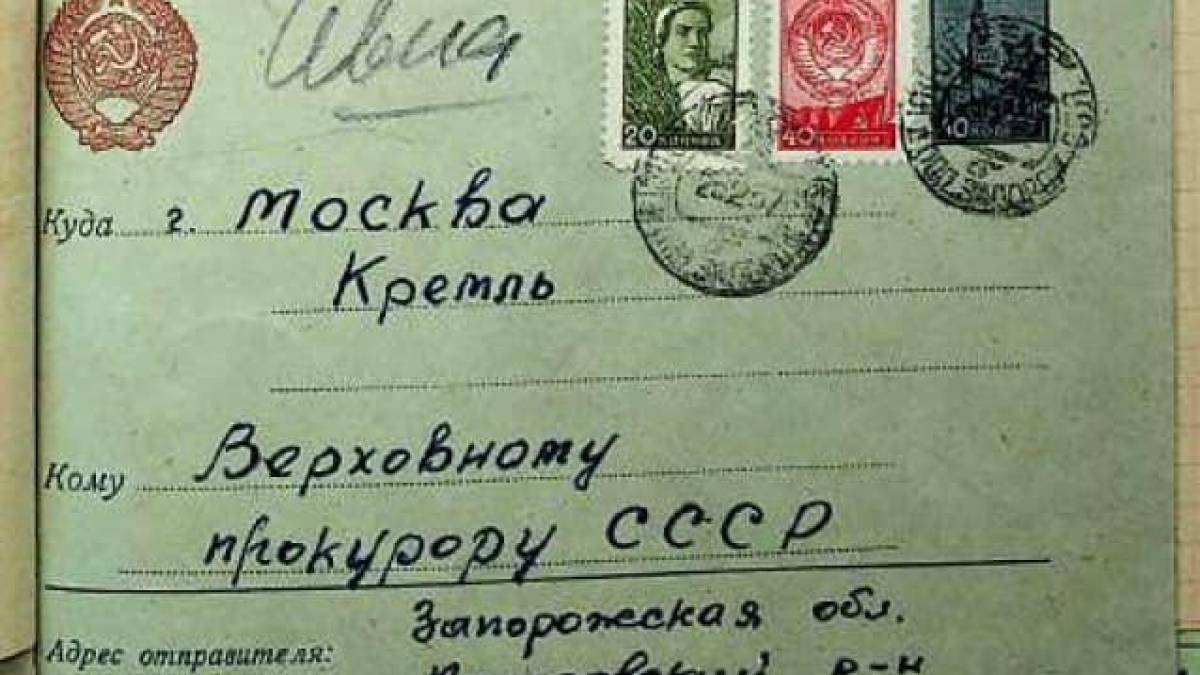 20 копеек
40 копеек
40 коп
Куда г. Москва
Кремль
Кому Верховному
прокурору СССР
Запорожская обл.
Адрес отправителя:
р-н